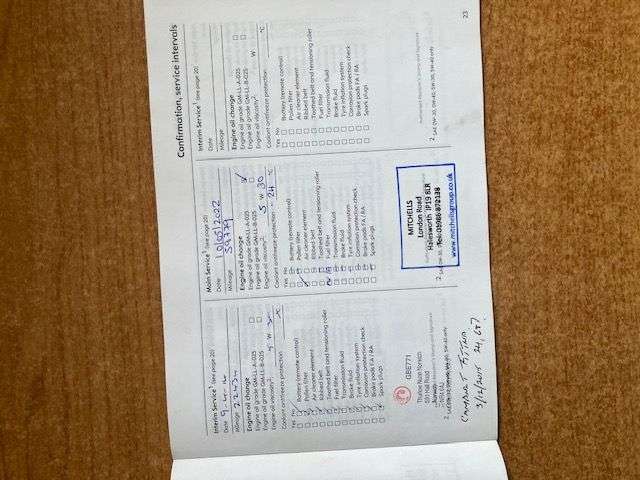 Confirmation, service intervals
Interim Service¹ (see page 20)
Date
Mileage
Engine oil change
Engine oil grade GM-LL-A-025
Engine oil grade GM-LL-B-025
Engine oil viscosity²
W
Coolant antifreeze protection
°C
Yes No
Battery (remote control)
Pollen filter
Air cleaner element
Ribbed belt
Toothed belt and tensioning roller
Fuel filter
Transmission fluid
Brake fluid
Tyre inflation system
Corrosion protection check
Brake pads FA / RA
Spark plugs
Thurlow Nunn Norwich
Main Service¹ (see page 20)
Date 10/05/2012
Mileage 59779
Engine oil change
Engine oil grade GM-LL-A-025
Engine oil grade GM-LL-B-025
Engine oil viscosity²
5 W 30
Coolant antifreeze protection
-24 °C
Yes No
Battery (remote control)
Pollen filter
Air cleaner element
Ribbed belt
Toothed belt and tensioning roller
Fuel filter
Transmission fluid
Brake fluid
Tyre inflation system
Corrosion protection check
Brake pads FA / RA
Spark plugs
MITCHELLS
London Road
Halesworth IP19 8LR
Tel: 01986 872138
www.mitchellsgroup.co.uk
Interim Service¹ (see page 20)
Date
Mileage
Engine oil change
Engine oil grade GM-LL-A-025
Engine oil grade GM-LL-B-025
Engine oil viscosity²
W
Coolant antifreeze protection
°C
Yes No
Battery (remote control)
Pollen filter
Air cleaner element
Ribbed belt
Toothed belt and tensioning roller
Fuel filter
Transmission fluid
Brake fluid
Tyre inflation system
Corrosion protection check
Brake pads FA / RA
Spark plugs
23